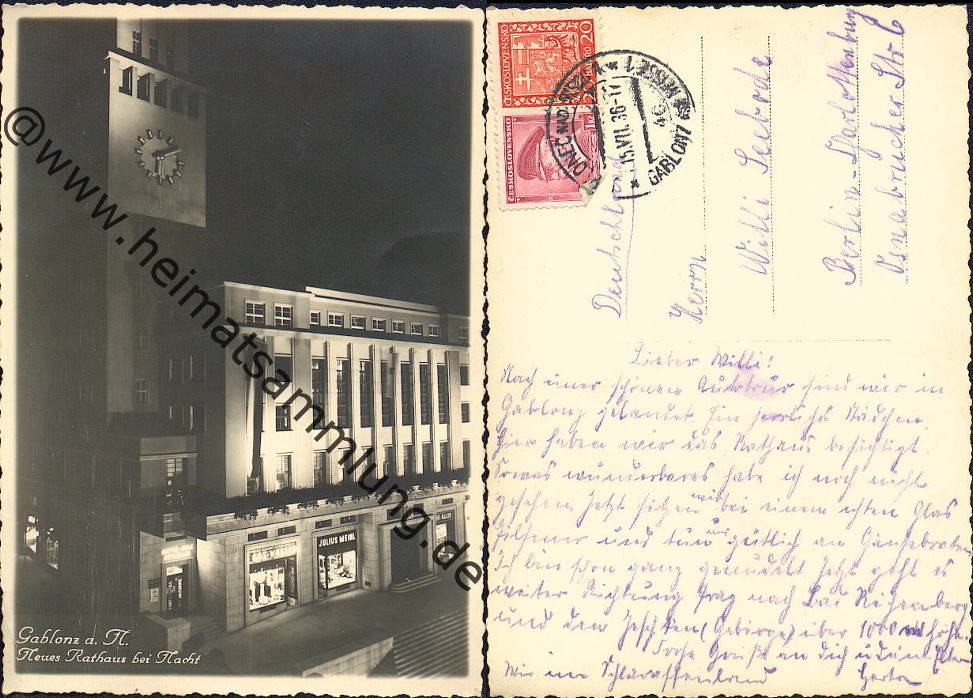 @www.heimatsammlung.de
JULIUS MEINL
Gablonz a. N.
Neues Rathaus bei Nacht
ČESKOSLOVENSKO
20
ČESKOSLOVENSKO
15.VII.36-17
GABLONZ
NEISSE 1
Deutschland
Herrn
Willi Seebode
Berlin-Charlottenburg
Osnabrücker Str 6
Lieber Willi!
Nach einer schönen Autotour sind wir in
Gablonz gelandet. Ein herrliches Städchen.
Hier haben wir das Rathaus besichtigt.
Sowas wunderbares habe ich noch nicht
gesehen. Jetzt sitzen wir bei einem echten Glas
Pilsener und tun uns gütlich an Gänsebraten
Ich bin schon ganz genudelt. Jetzt geht es
weiter Richtung Prag nach Bad Reichenberg
und den Jeschken (Gebirge) über 1000 m hoch.
Frohe Grüße an Dich u Deine Eltern
Wie im Schlaraffenland Herta